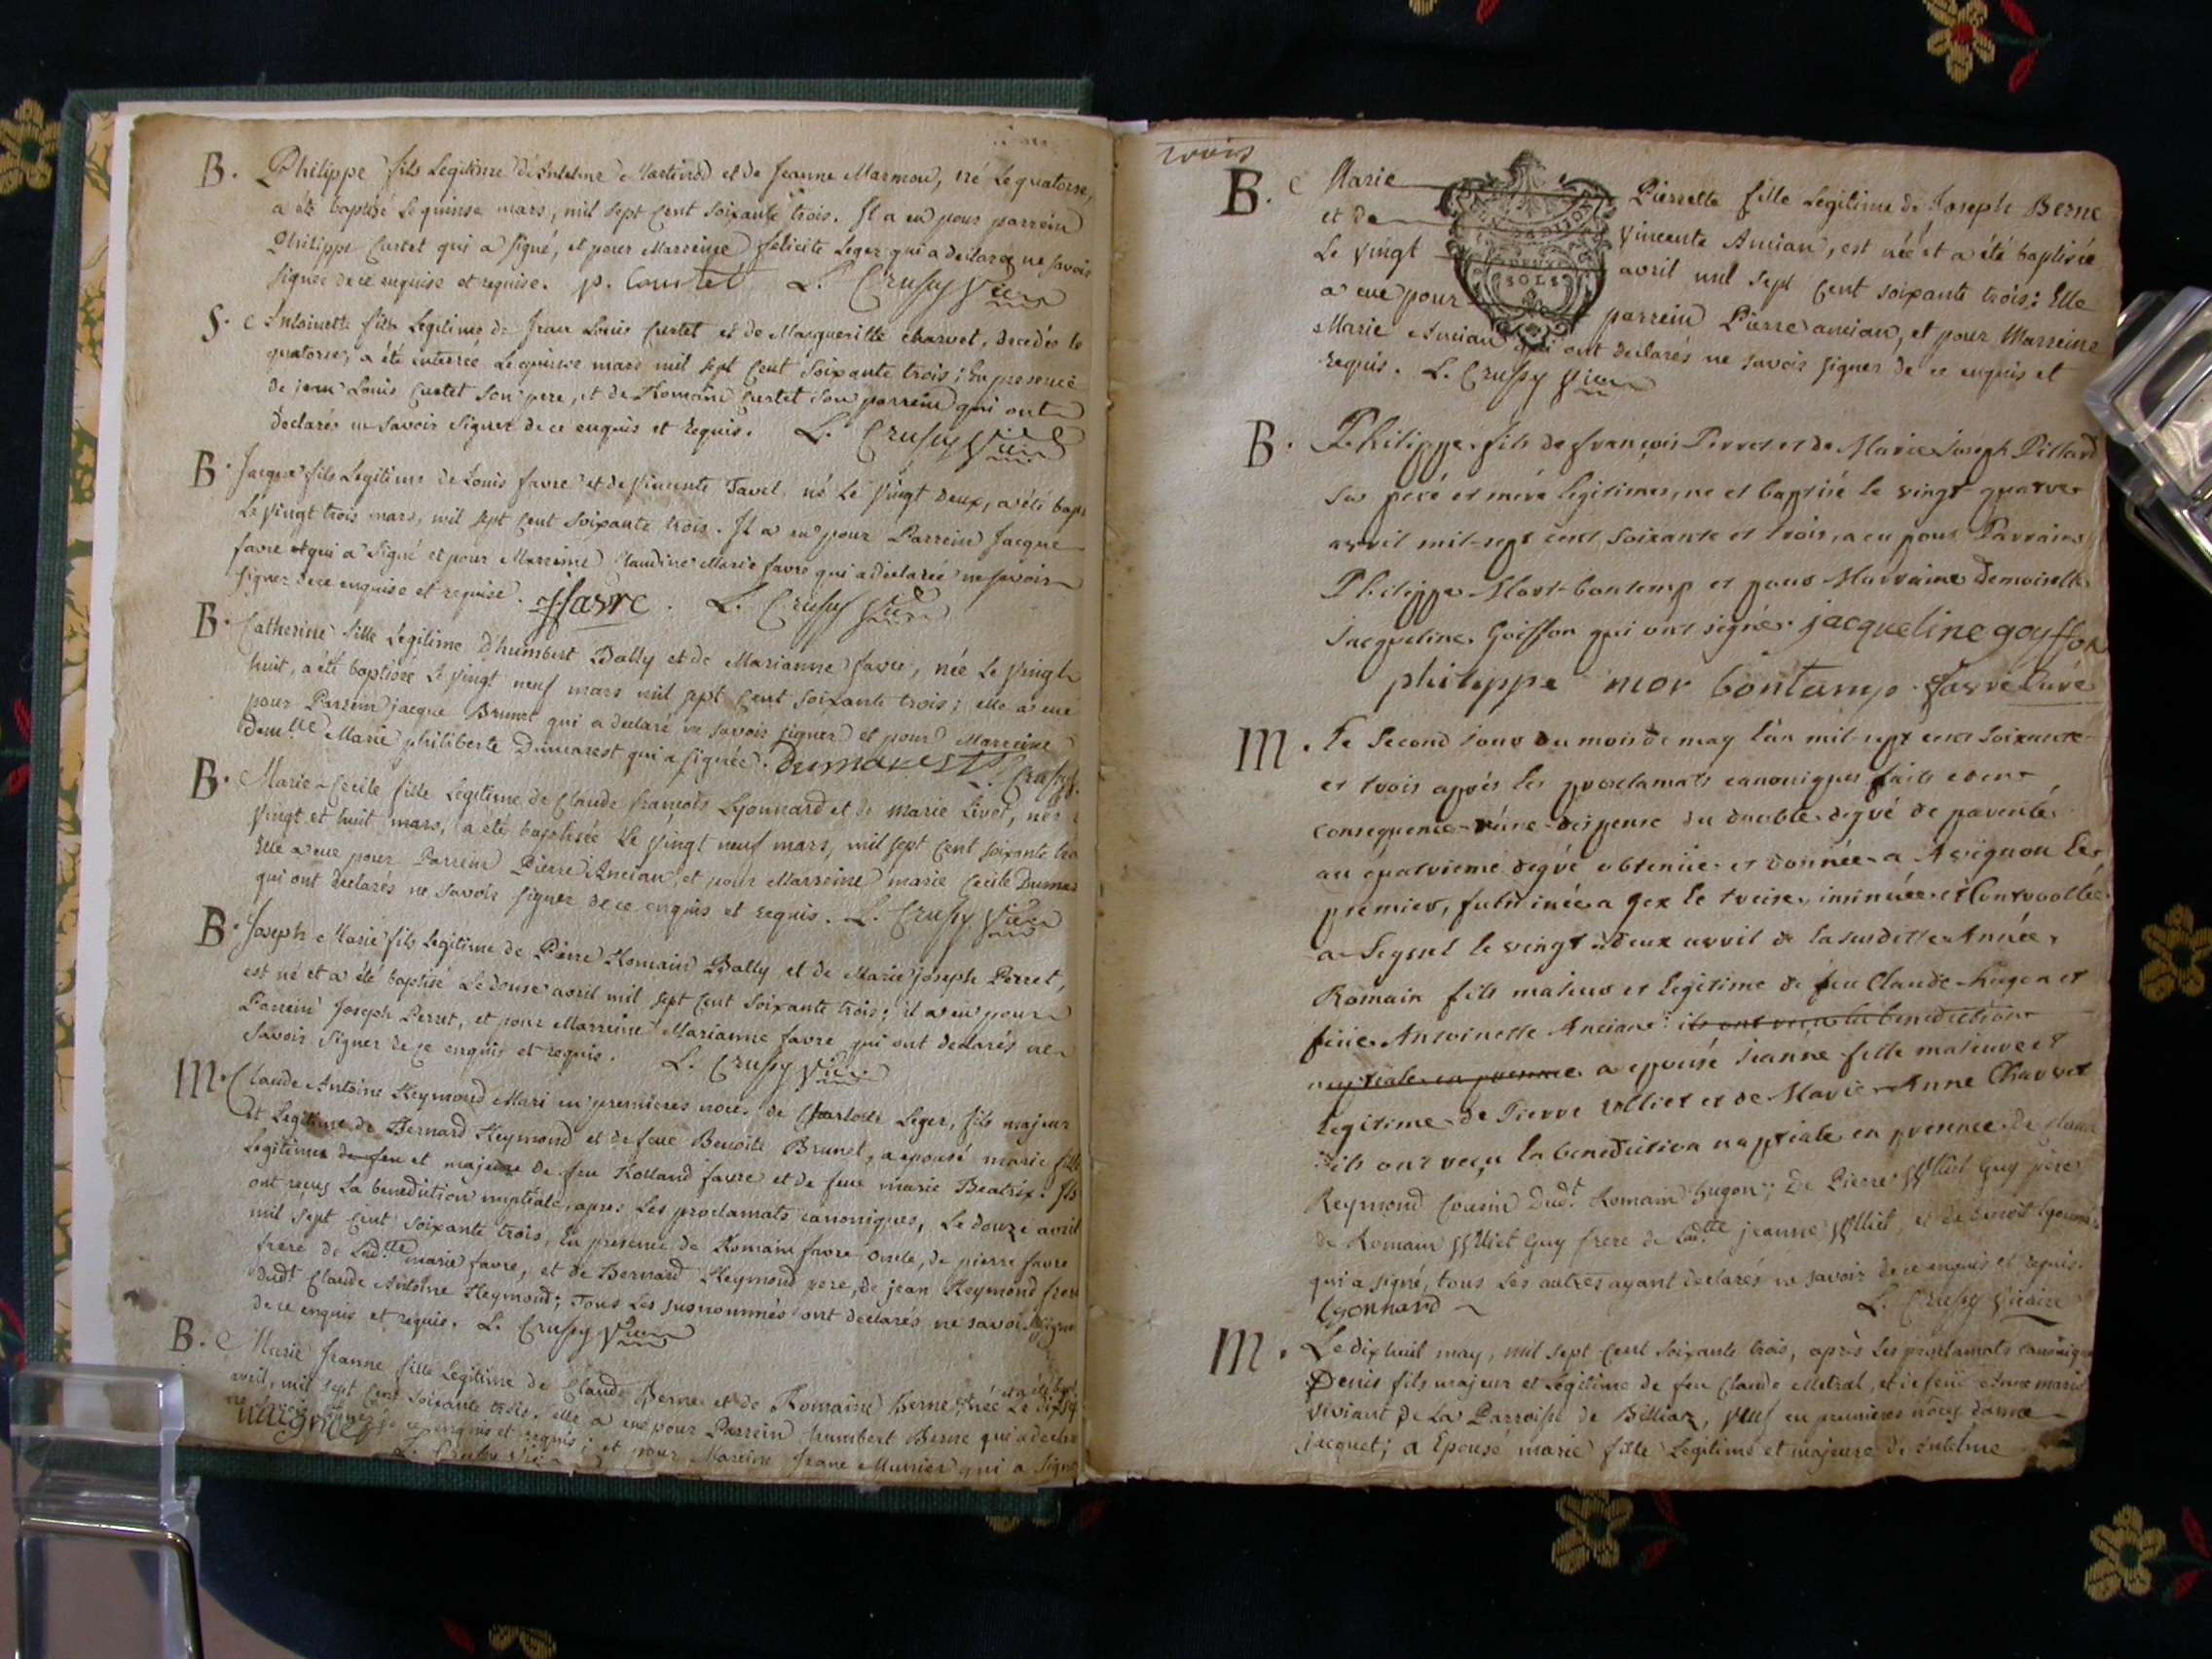 B. Philippe fils Legitime d'Antelme Martinod et de Jeanne Marmou, né le quatorse,
a été baptisé le quinse mars, mil sept Cent Soixante trois. Il a eu pour parrein
Philippe Curtet qui a signé, et pour Marreine felicite Leger qui a declaré ne savoir
signer de ce enquise et requise. p. Courtet L. Crussy Vic.
S. Antoinette fille Legitime de Jean Louis Curtet et de Margueritte charvet, decedée le
quatorse, a été enterrée le quinse mars mil sept Cent Soixante trois; En presence
de jean Louis Curtet son pere, et de Romain Curtet son parrein qui ont
declarés ne savoir signer de ce enquis et requis. L. Crussy Vic.
B. Jacque fils Legitime de Louis favre et de Vincente Tavel, né le Vingt deux, a été bapt
Le Vingt trois mars, mil sept Cent Soixante trois. Il a eu pour Parrein Jacque
favre qui a Signé et pour Marreine Claudine Marie favre qui a declarée ne savoir
signer de ce enquise et requise. J favre. L. Crussy Vic.
B. Catherine fille Legitime d'humbert Bally et de Marianne favre, née le Vingt
huit, a été baptisée le Vingt neuf mars mil sept Cent Soixante trois; elle a eue
pour Parrein jacque Brunet qui a declaré ne savoir signer et pour Marreine
Dem.lle Marie philiberte Dumarest qui a signée. Dumarest L. Crussy
B. Marie-Cecile fille Legitime de Claude françois Lyonnard et de marie Livet, née
Vingt et huit mars, a été baptisée Le Vingt neuf mars, mil sept Cent soixante tro
Elle a eue pour Parrein Pierre Anciau, et pour Marreine marie Cecile Dumar
qui ont declarés ne savoir signer de ce enquis et requis. L. Crussy Vic.
B. Joseph Marie fils legitime de Pierre Romain Bally et de Marie joseph Perret,
est né et a été baptisé Le douse avril mil sept Cent Soixante trois; il a eu pour
Parrein Joseph Perret, et pour Marreine Marianne favre qui ont declarés ne
Savoir signer de ce enquis et requis. L. Crussy Vic.
M. Claude Antoine Reymond Mari en premieres noces de Charlotte Leger, fils majeur
et Legitime de Bernard Reymond et de feue Benoite Brunet, a epousé marie fille
Legitime de feu et majeure de feu Rolland favre et de feue marie Beatrix: Ils
ont reçus La benediction nuptiale, apres Les proclamats canoniques, Le douze avril
mil sept Cent soixante trois, En presence de Romain favre oncle, de pierre favre
frere de Lad.tte marie favre, et de Bernard Reymond pere, de jean Reymond frere
dud.t Claude Antoine Reymond; Tous Les susnommés ont declarés ne savoir signer
de ce enquis et requis. L. Crussy Vic.
B. Marie Jeanne fille Legitime de Claude Berne et de Romaine Berne, née
avril, mil sept Cent soixante trois. elle a eue pour Parrein humbert Berne qui a declaré
ne savoir signer de ce enquis et requis; et pour Marreine Jeane Munier qui a signé
L. Crussy Vic.
trois
B. Marie Pierrette fille Legitime de Joseph Berne
et de Vincente Anciau, est née et a été baptisée
Le Vingt avril mil sept Cent soixante trois: Elle
a eue pour parrein Pierre anciau, et pour Marreine
Marie Anciau qui ont declarés ne savoir signer de ce enquis et
requis. L. Crussy Vic.
DEUX SOLS
B. Philippe fils de françois Perret et de Marie Joseph Pillard
ses peré et méré legitimes, ne et baptisé le vingt quatre
avril mil-sept cent soixante et trois, a eu pour Parrain
Philippe Mort-bontemp et pour Marraine demoiselle
Jacqueline Goiffon qui ont signé. jacqueline goyffon
philippe mor bontamp. Favre Curé
M. Le Second jour du mois de may l'an mil-sept cent soixante
et trois après les proclamats canoniques faits et en
consequence d'une dispense du double degré de parenté
au quatrieme degré obtenüe et donnée a Avignon le
premier, fulminée a Gex le treise, insinuée et Controollée
a Seyssel le vingt-deux avril de la susditte Année,
Romain fils majeur et legitime de feu Claude Hugon et
feüe Antoinette Anciau: ils ont reçu la benediction
nuptiale en presence a epousé jeanne fille majeure et
legitime de Pierre Volliet et de Marie-Anne Charvet
ils ont reçu la benediction nuptiale en presence de Claude
Reymond Cousin dud.t Romain hugon; de Pierre Vulliet Guy père
de Romain Vulliet Guy frere de Lad.tte jeanne Vulliet, et de benoit lyonnard
qui a signé, tous Les autres ayant declarés ne savoir de ce enquis et requis.
Lyonnard L. Crussy Vicaire
M. Le dix huit may, mil sept Cent Soixante trois, après Les proclamats canoniques
Denis fils majeur et Legitime de feu Claude Metral, et de feüe Anne marie
Viviant de La Parroisse de Billiaz, Veuf en premieres nôces d'anne
jacquet; a Epousé marie fille Legitime et majeure de Antelme